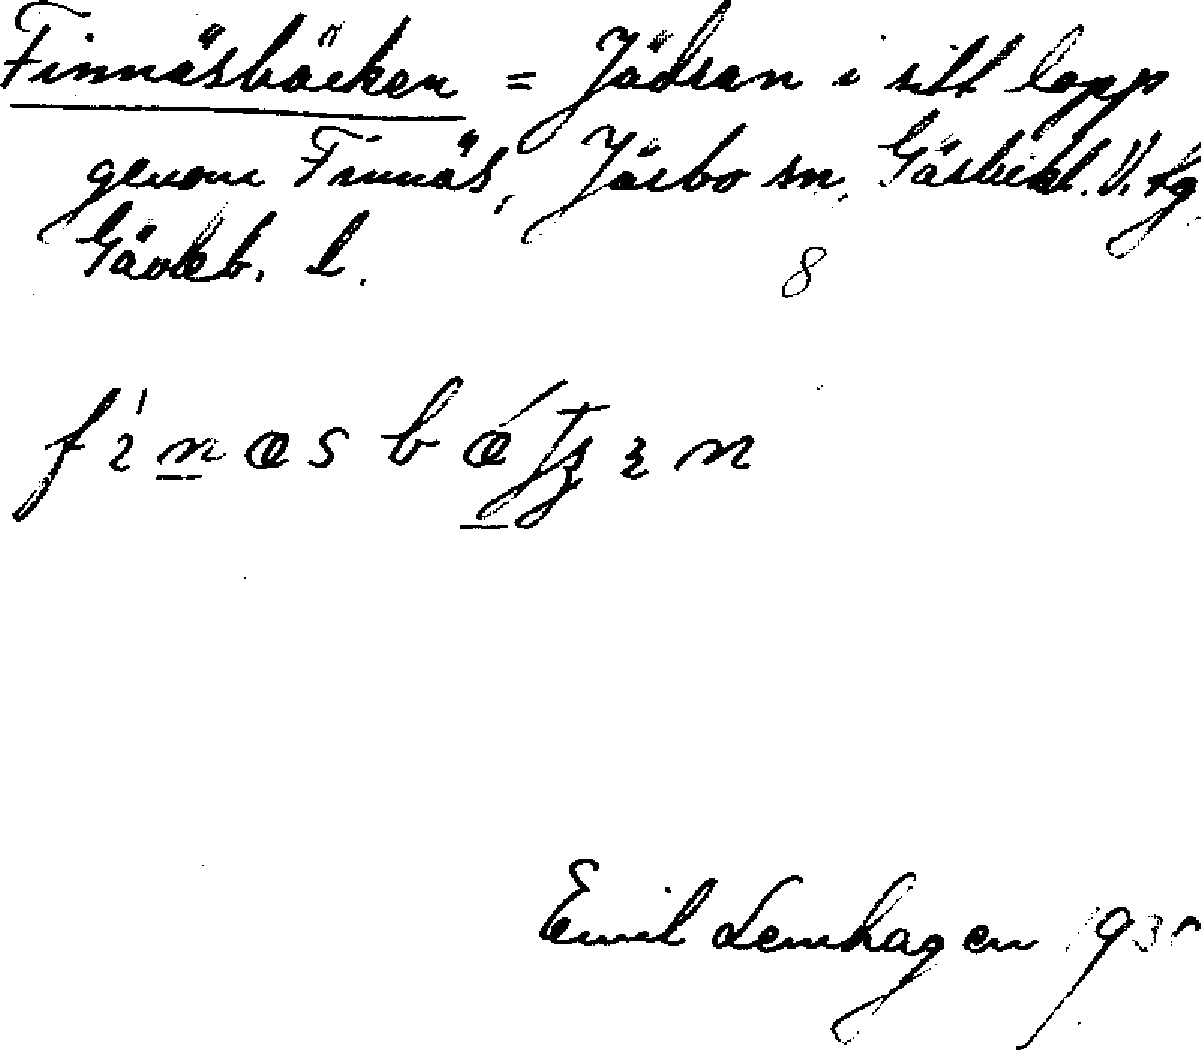 Finnäsbäcken = Jädran i sitt lopp
genom Finnäs, Järbo sn, Gästrikl. V. tg
Gävleb. l.
8
Emil Lenhagen